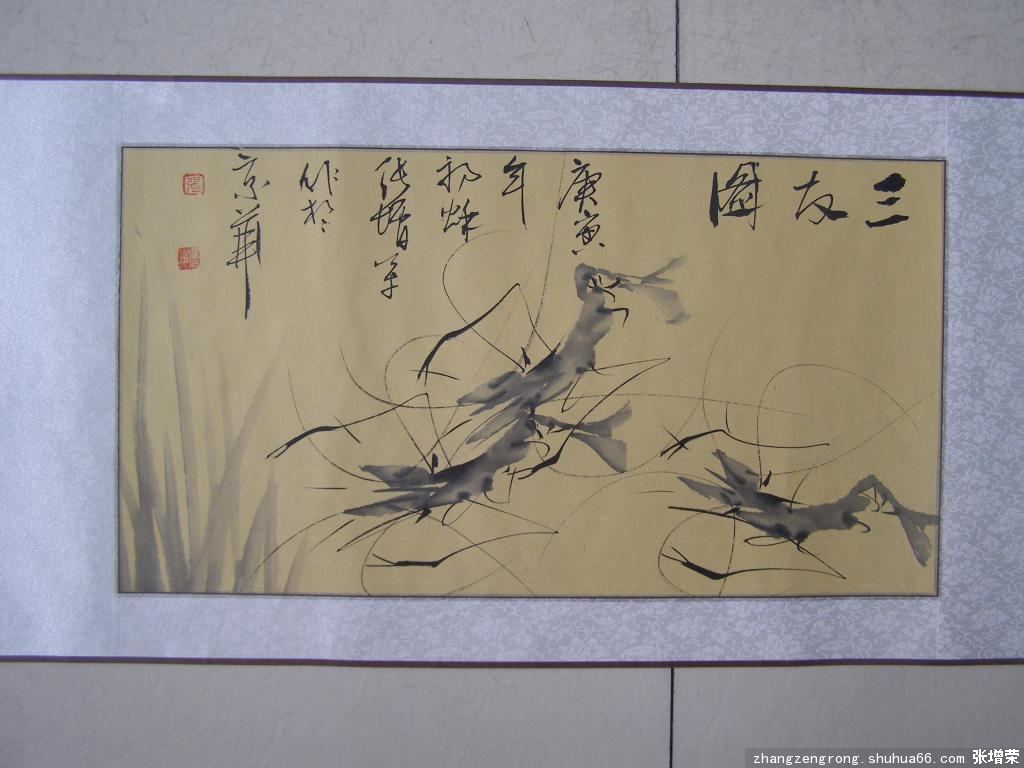 三友图
庚寅
年
初秋
张增荣
作於
京華
zhangzengrong.shuhua66.com 张增荣